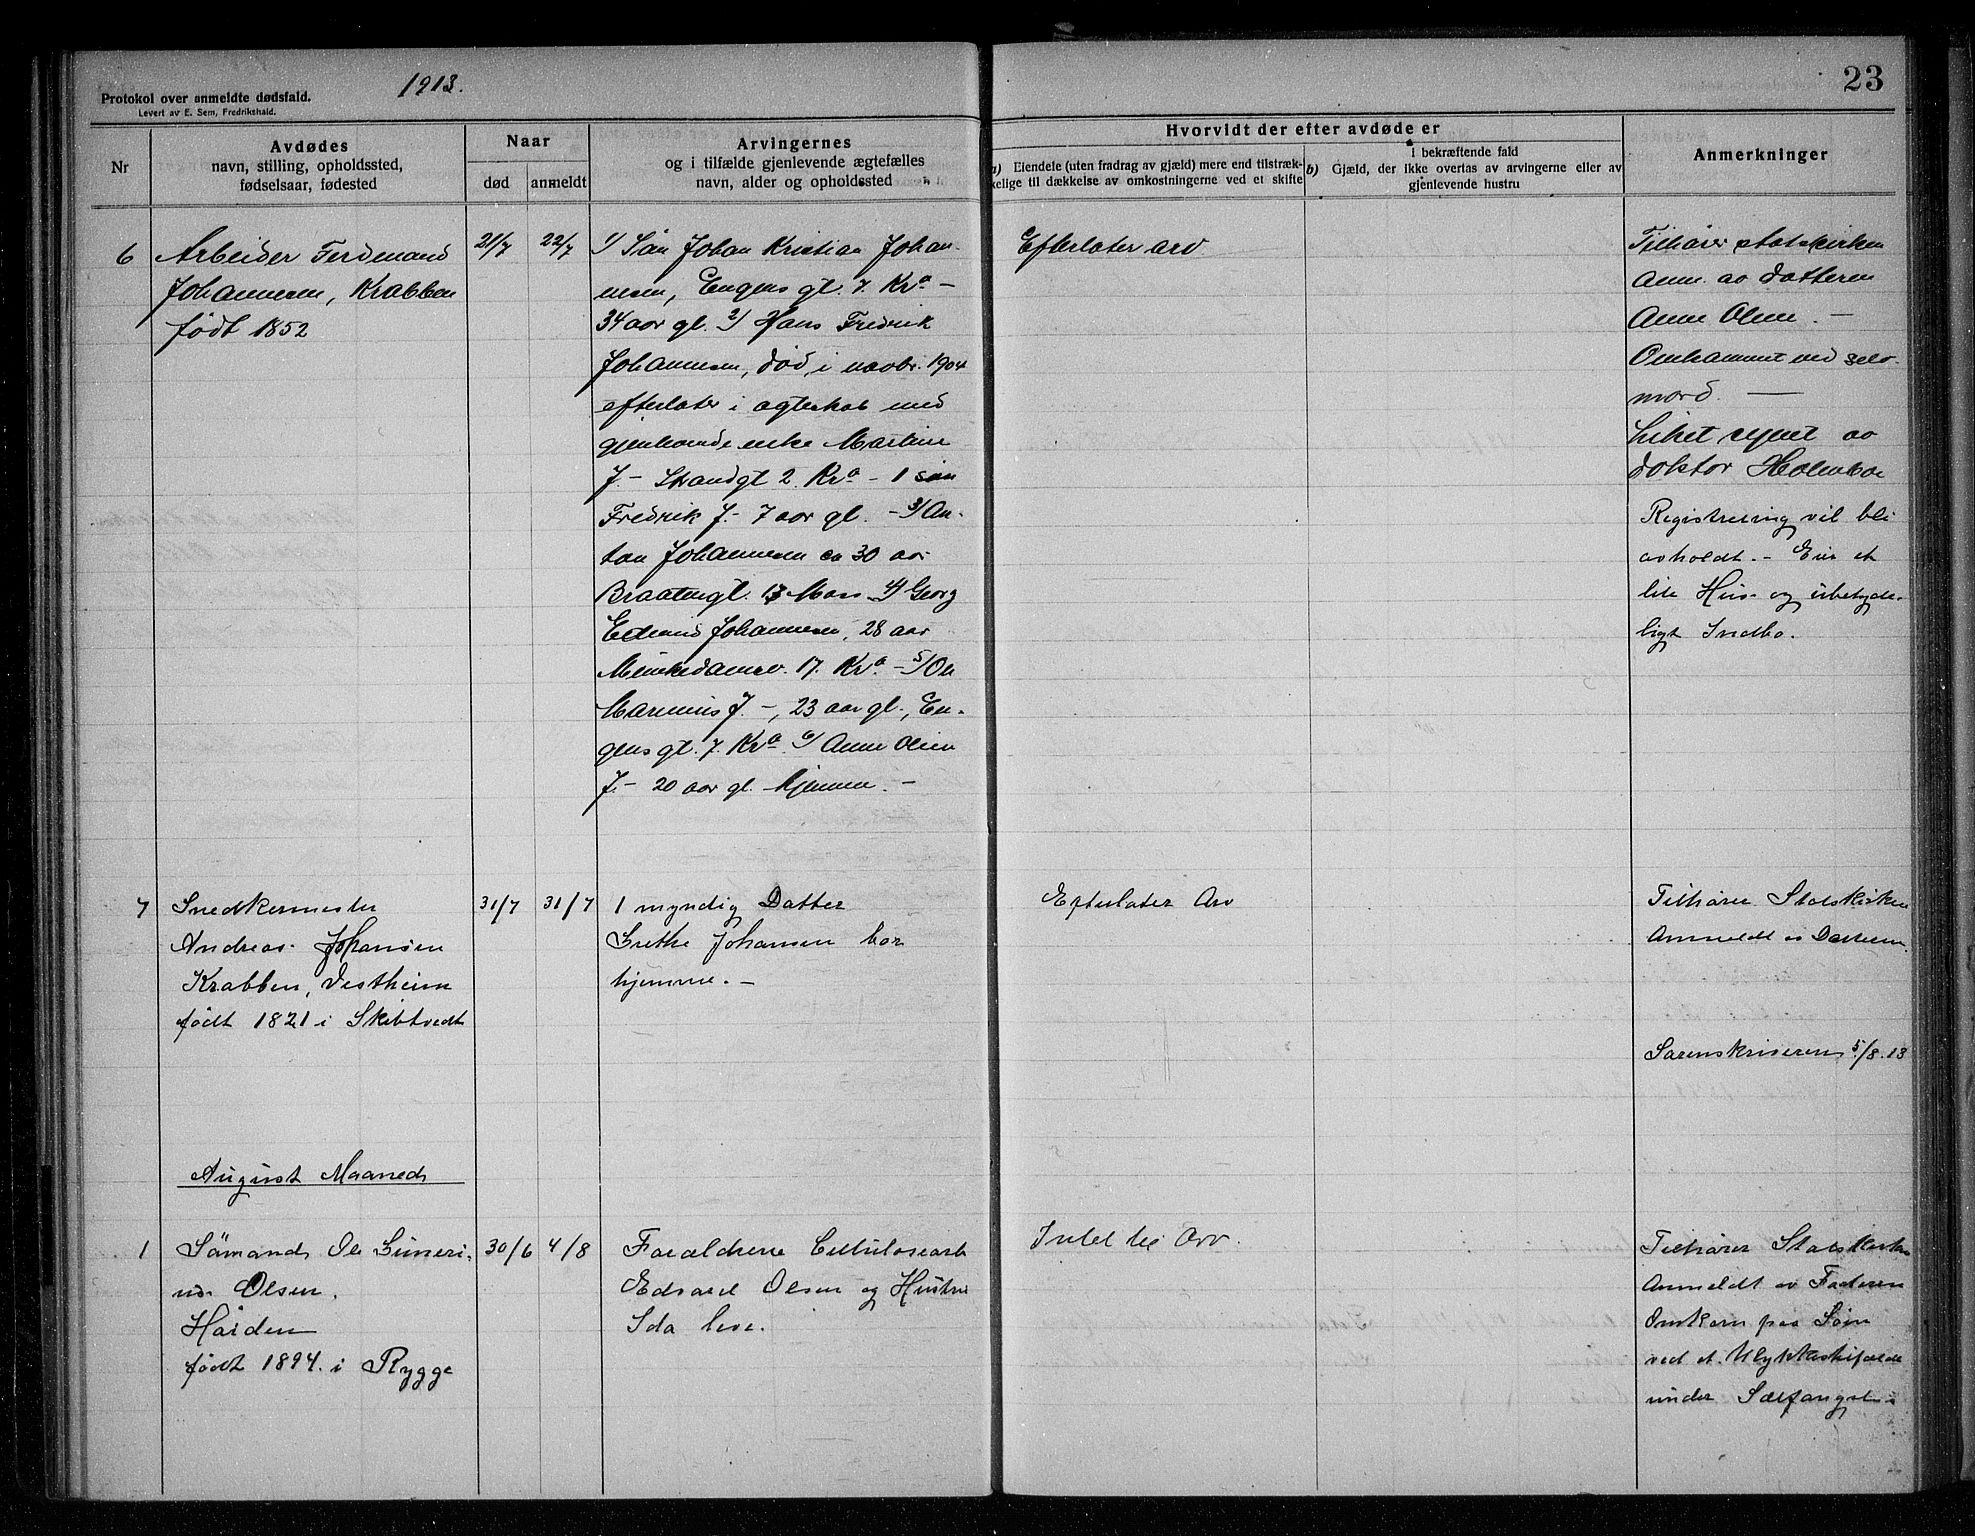 1913.
23
Protokol over anmeldte dødsfald.
Levert av E. Sem, Fredrikshald.
Nr
Avdødes
navn, stilling, opholdssted,
fødselsaar, fødested
Naar
død
anmeldt
Arvingernes
og i tilfælde gjenlevende ægtefælles
navn, alder og opholdssted
Hvorvidt der efter avdøde er
a) Eiendele (uten fradrag av gjæld) mere end tilstræk-
kelige til dækkelse av omkostningerne ved et skifte
i bekræftende fald
b) Gjæld, der ikke overtas av arvingerne eller av
gjenlevende hustru
Anmerkninger
6
Arbeider Ferdinand
Johannesen, Krabben
født 1852
21/7
22/7
1) Søn Johan Kristian Johan-
nesen, Engens gt. 7. Kra -
34 aar gl. 2) Hans Fredrik
Johannesen, død i novbr. 1904
efterlater i ægteskab med
gjenlevende enke Martine
J. - Strandgt 2. Kra - 1 søn
Fredrik J. - 7 aar gl. - 3) An-
ton Johannesen ca 30 aar
Braatengt. 13 Moss 4) Georg
Edvind Johannesen, 28 aar
Munkedamsv. 17. Kra. - 5) Ole
Marinius J. -, 23 aar gl., En-
gens gt. 7. Kra. 6) Anne Oline
J. - 20 aar gl. hjemme. -
Efterlater arv.
Tilhører statskirken
Anm. av datteren
Anne Oline. -
Omkommet ved selv-
mord. -
Liket synet av
doktor Holmboe
Registrering vil bli
avholdt. - Eier et
lite Hus og ubetyde-
ligt Indbo.
7
Snedkermester
Andreas Johansen
Krabben, Vestheim
født 1821 i Skibtvedt
31/7
31/7
1 myndig Datter
Grethe Johansen bor
hjemme. -
Efterlater Arv
Tilhører Statskirken
Anmeldt av Datteren.
Sorenskriveren 5/8. 13
August Maaned
1
Sømand Ole Guneri-
us Olsen.
Høiden
født 1894. i Rygge
30/6
4/8
Forældrene Cellulosearb
Edvard Olsen og Hustru
Ida leve.
Intet til Arv.
Tilhører Statskirken
Anmeldt av Faderen
Omkom paa Sjøen
ved et Ulykkestilfælde
under Sælfangst.